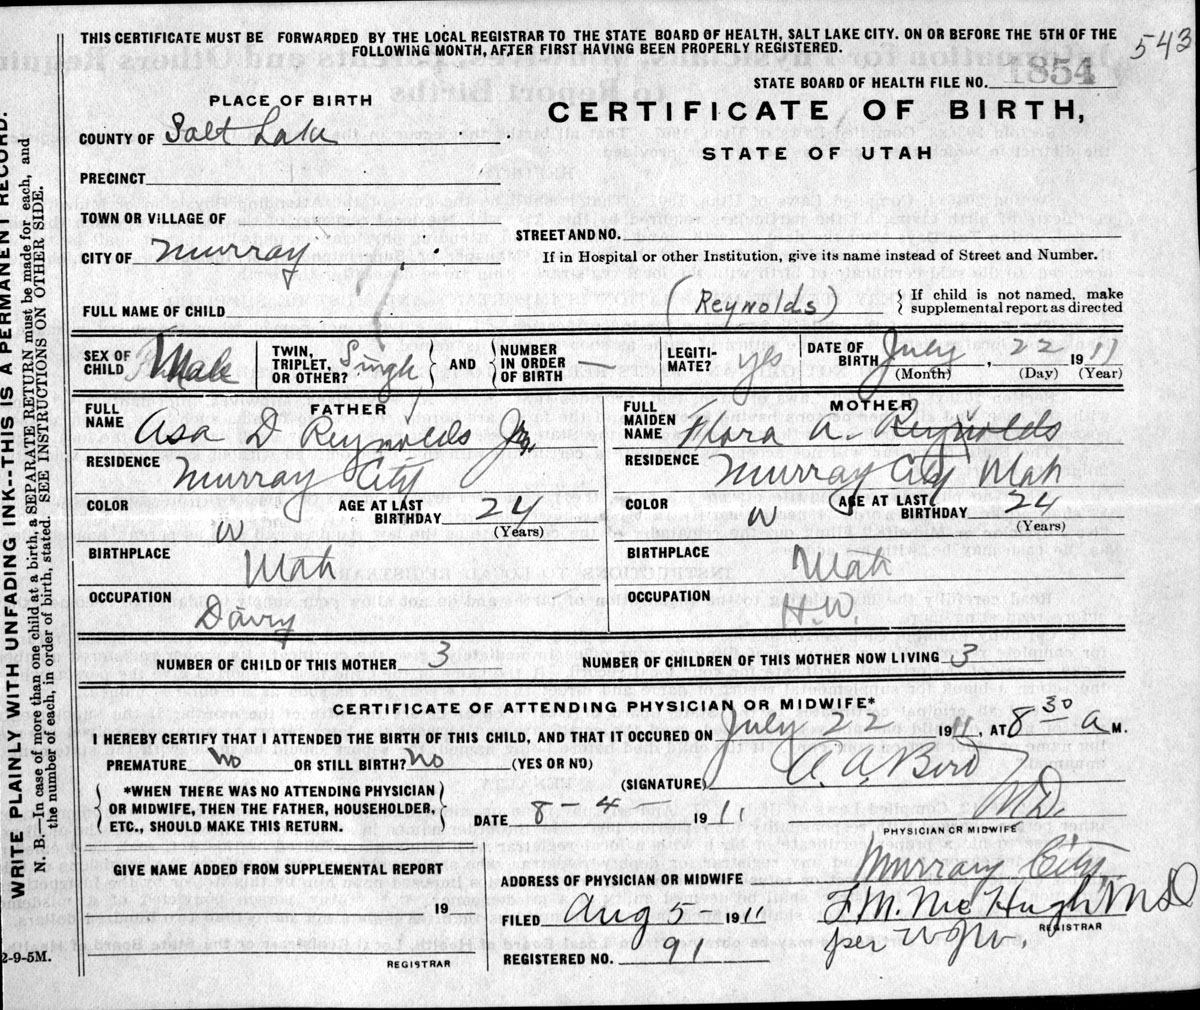 543
THIS CERTIFICATE MUST BE FORWARDED BY THE LOCAL REGISTRAR TO THE STATE BOARD OF HEALTH, SALT LAKE CITY. ON OR BEFORE THE 5TH OF THE
FOLLOWING MONTH, AFTER FIRST HAVING BEEN PROPERLY REGISTERED.
STATE BOARD OF HEALTH FILE NO. 1854
PLACE OF BIRTH
CERTIFICATE OF BIRTH,
COUNTY OF Salt Lake
STATE OF UTAH
PRECINCT
TOWN OR VILLAGE OF
STREET AND NO.
CITY OF Murray
If in Hospital or other Institution, give its name instead of Street and Number.
FULL NAME OF CHILD (Reynolds) { If child is not named, make
supplemental report as directed
SEX OF
CHILD Male
TWIN,
TRIPLET,
OR OTHER? Single
} AND {
NUMBER
IN ORDER
OF BIRTH —
LEGITI-
MATE? yes
DATE OF
BIRTH July, 22 1911
(Month) (Day) (Year)
FATHER
FULL
NAME Asa D Reynolds Jr.
RESIDENCE Murray City
COLOR W
AGE AT LAST
BIRTHDAY 24
(Years)
BIRTHPLACE Utah
OCCUPATION Dairy
MOTHER
FULL
MAIDEN
NAME Flora A. Reynolds
RESIDENCE Murray City Utah
COLOR W
AGE AT LAST
BIRTHDAY 24
(Years)
BIRTHPLACE Utah
OCCUPATION H.W.
NUMBER OF CHILD OF THIS MOTHER 3
NUMBER OF CHILDREN OF THIS MOTHER NOW LIVING 3
CERTIFICATE OF ATTENDING PHYSICIAN OR MIDWIFE*
I HEREBY CERTIFY THAT I ATTENDED THE BIRTH OF THIS CHILD, AND THAT IT OCCURED ON July 22 1911, AT 8 30 a M.
PREMATURE No OR STILL BIRTH? No (YES OR NO)
(SIGNATURE) A. A. Bird
M.D.
{ *WHEN THERE WAS NO ATTENDING PHYSICIAN
OR MIDWIFE, THEN THE FATHER, HOUSEHOLDER,
ETC., SHOULD MAKE THIS RETURN. }
DATE 8 - 4 - 1911
PHYSICIAN OR MIDWIFE
GIVE NAME ADDED FROM SUPPLEMENTAL REPORT
19
REGISTRAR
ADDRESS OF PHYSICIAN OR MIDWIFE Murray City.
FILED Aug 5 - 1911 F. M. McHugh MD
REGISTRAR
per WJW.
REGISTERED NO. 91
2-9-5M.
WRITE PLAINLY WITH UNFADING INK--THIS IS A PERMANENT RECORD.
N. B.—In case of more than one child at a birth, a SEPARATE RETURN must be made for each, and
the number of each, in order of birth, stated. SEE INSTRUCTIONS ON OTHER SIDE.